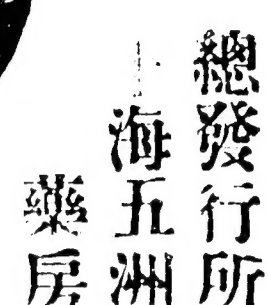 總發行所
上海五洲
藥房